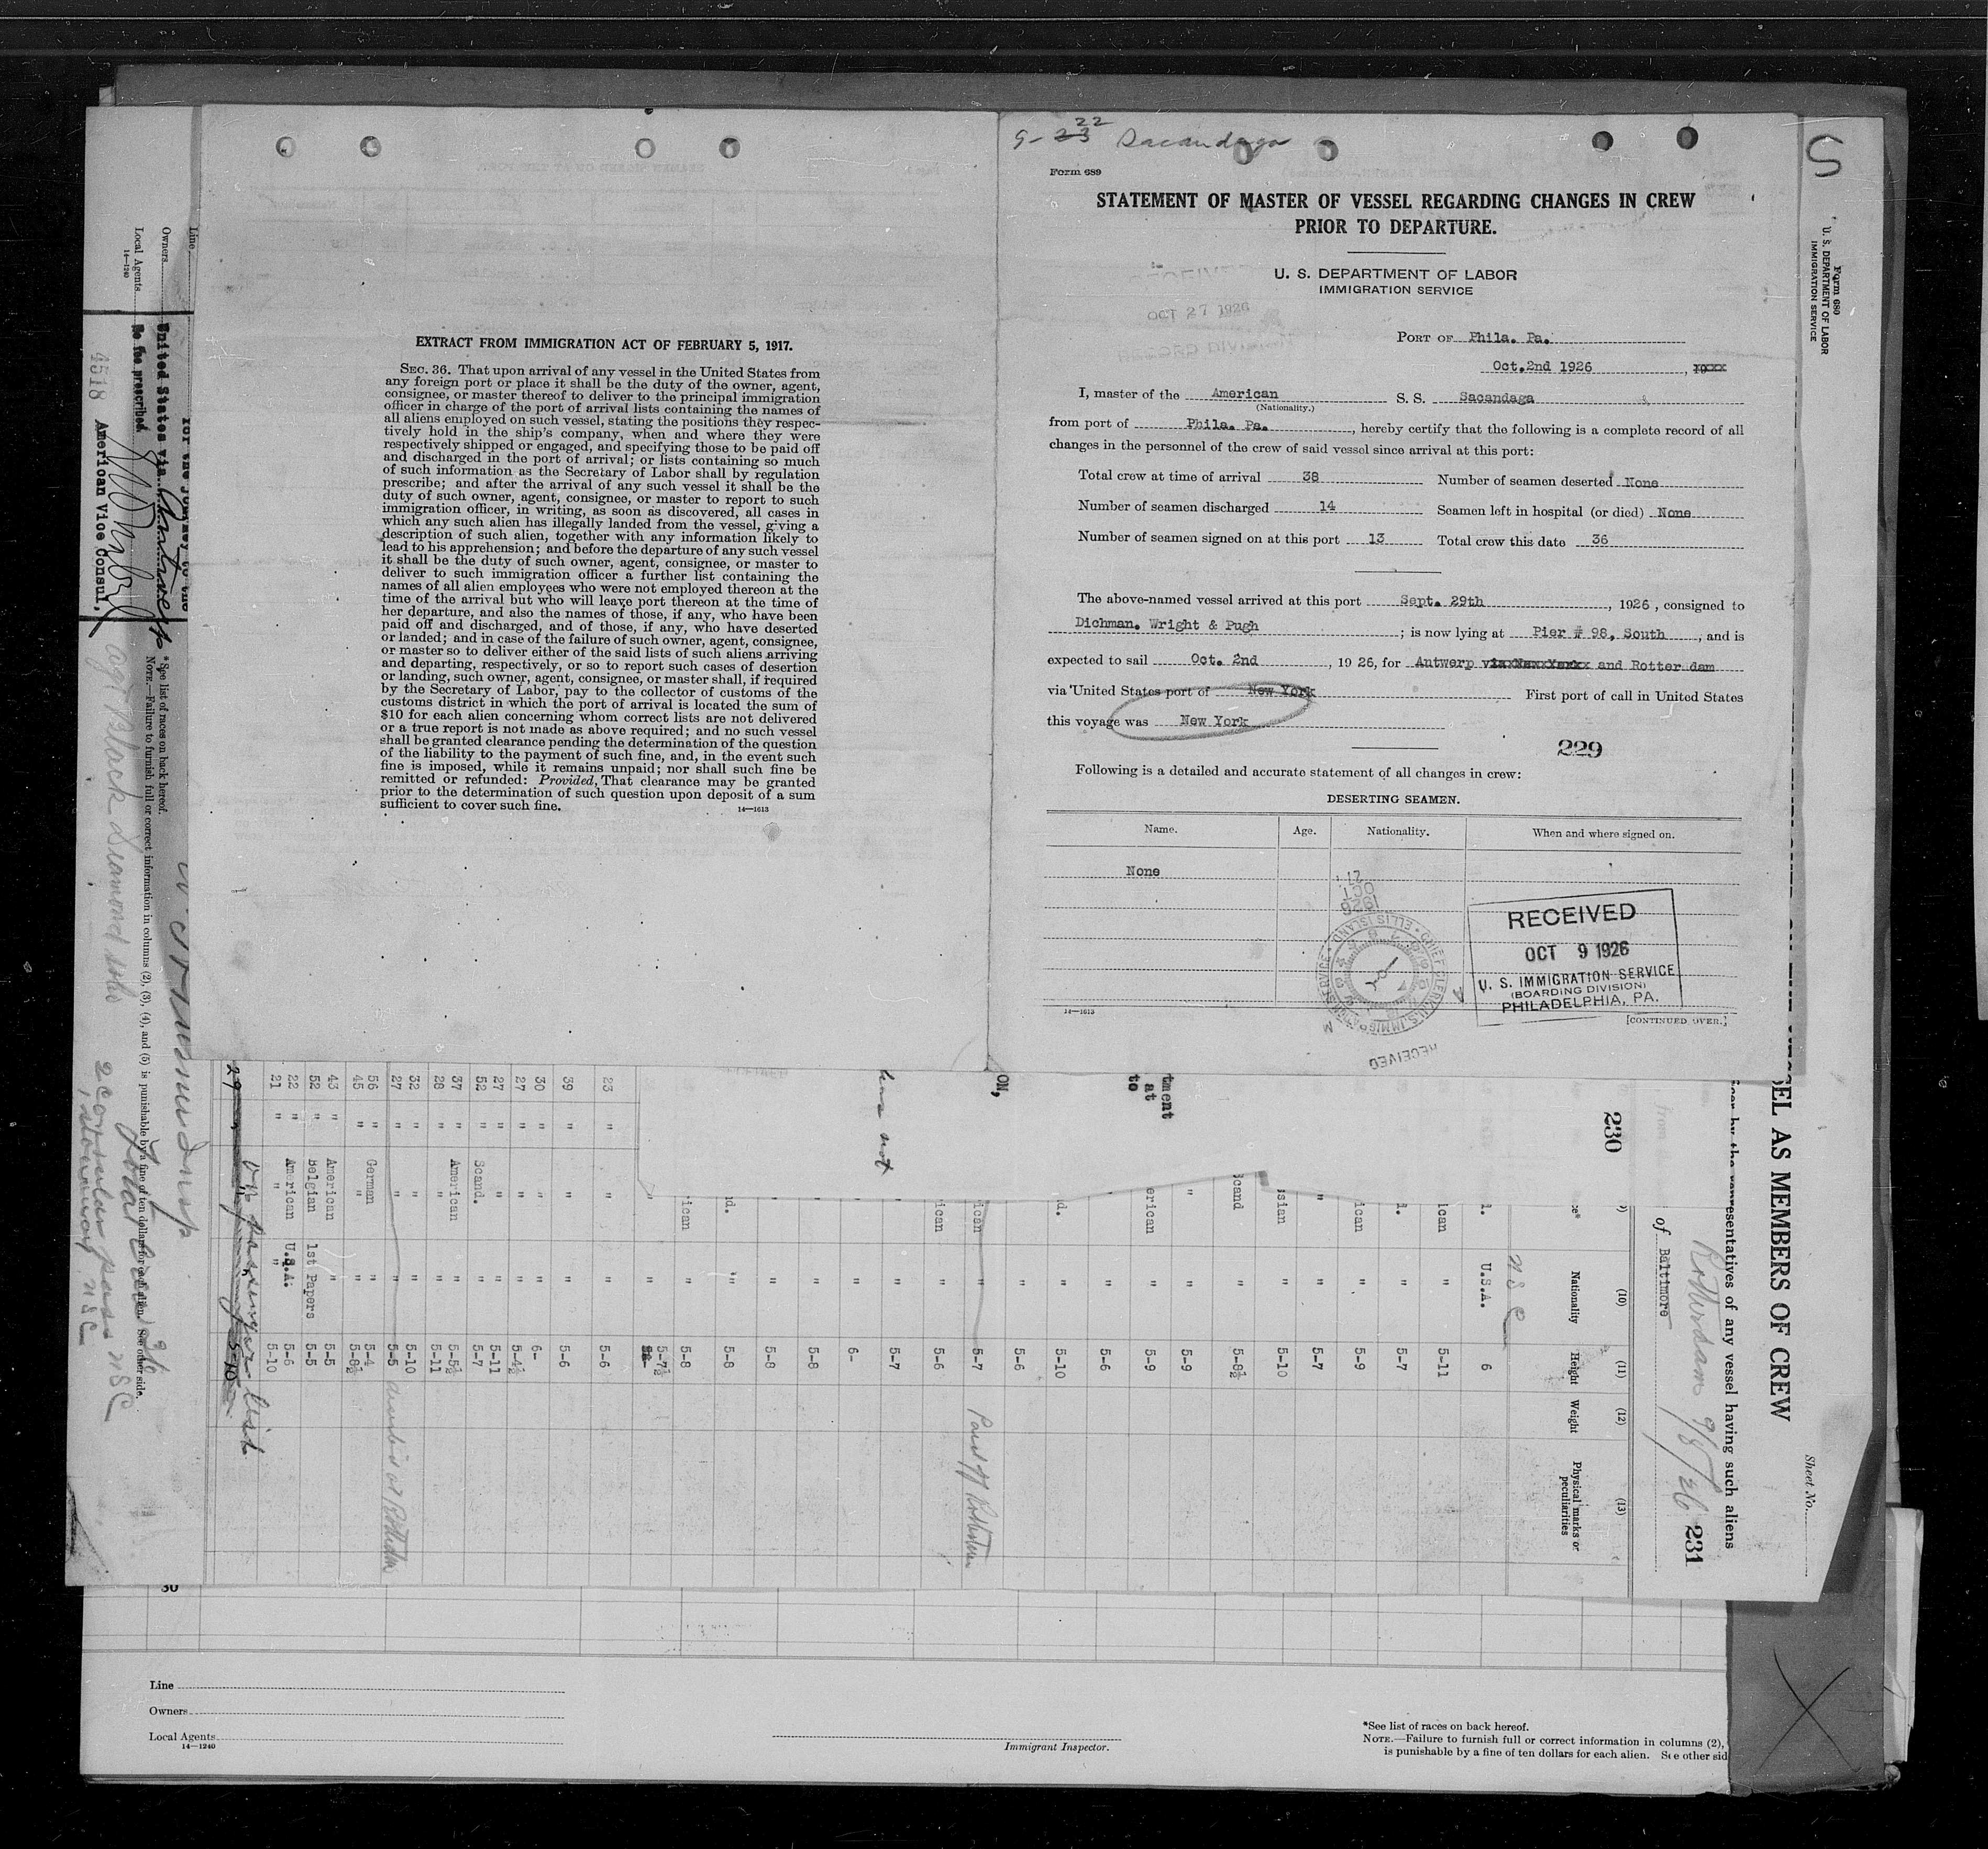 9-23 22 Sacandaga
Form 689
STATEMENT OF MASTER OF VESSEL REGARDING CHANGES IN CREW
PRIOR TO DEPARTURE.
U. S. DEPARTMENT OF LABOR
IMMIGRATION SERVICE
OCT 27 1926
PORT OF Phila. Pa.
Oct.2nd 1926
I, master of the American S. S. Sacandaga
(Nationality.)
from port of Phila. Pa., hereby certify that the following is a complete record of all
changes in the personnel of the crew of said vessel since arrival at this port:
Total crew at time of arrival 38 Number of seamen deserted None
Number of seamen discharged 14 Seamen left in hospital (or died) None
Number of seamen signed on at this port 13 Total crew this date 36
The above-named vessel arrived at this port Sept. 29th, 1926, consigned to
Dichman. Wright & Pugh; is now lying at Pier # 98, South, and is
expected to sail Oct. 2nd, 1926, for Antwerp and Rotter dam
via United States port of New York First port of call in United States
this voyage was New York
229
Following is a detailed and accurate statement of all changes in crew:
DESERTING SEAMEN.
Name. Age. Nationality. When and where signed on.
None
RECEIVED
OCT 9 1926
U. S. IMMIGRATION SERVICE
(BOARDING DIVISION)
PHILADELPHIA, PA.
14—1613
[CONTINUED OVER.]
EXTRACT FROM IMMIGRATION ACT OF FEBRUARY 5, 1917.
SEC. 36. That upon arrival of any vessel in the United States from
any foreign port or place it shall be the duty of the owner, agent,
consignee, or master thereof to deliver to the principal immigration
officer in charge of the port of arrival lists containing the names of
all aliens employed on such vessel, stating the positions they respec-
tively hold in the ship's company, when and where they were
respectively shipped or engaged, and specifying those to be paid off
and discharged in the port of arrival; or lists containing so much
of such information as the Secretary of Labor shall by regulation
prescribe; and after the arrival of any such vessel it shall be the
duty of such owner, agent, consignee, or master to report to such
immigration officer, in writing, as soon as discovered, all cases in
which any such alien has illegally landed from the vessel, giving a
description of such alien, together with any information likely to
lead to his apprehension; and before the departure of any such vessel
it shall be the duty of such owner, agent, consignee, or master to
deliver to such immigration officer a further list containing the
names of all alien employees who were not employed thereon at the
time of the arrival but who will leave port thereon at the time of
her departure, and also the names of those, if any, who have been
paid off and discharged, and of those, if any, who have deserted
or landed; and in case of the failure of such owner, agent, consignee,
or master so to deliver either of the said lists of such aliens arriving
and departing, respectively, or so to report such cases of desertion
or landing, such owner, agent, consignee, or master shall, if required
by the Secretary of Labor, pay to the collector of customs of the
customs district in which the port of arrival is located the sum of
$10 for each alien concerning whom correct lists are not delivered
or a true report is not made as above required; and no such vessel
shall be granted clearance pending the determination of the question
of the liability to the payment of such fine, and, in the event such
fine is imposed, while it remains unpaid; nor shall such fine be
remitted or refunded: Provided, That clearance may be granted
prior to the determination of such question upon deposit of a sum
sufficient to cover such fine.
14—1613
S
Form 680
U. S. DEPARTMENT OF LABOR
IMMIGRATION SERVICE
AS MEMBERS OF CREW
Sheet No.
representatives of any vessel having such aliens
Rotterdam 9/8/26
231
of Baltimore
230
(10) (11) (12) (13)
Nationality Height Weight Physical marks or
peculiarities
U.S.A. 6
5-11
5-7
5-9
5-7
5-10
5-8½
5-9
5-9
5-6
5-10
5-6
5-7 Paid off Rotterdam
5-6
5-7
6-
5-8
5-8
5-8
5-7½
23 " " " 5-6
39 " " " 5-6
30 " " " 6-
27 " " " 5-4½
27 " " " 5-11
52 " Scand. " 5-7
37 " American " 5-5½
28 " " " 5-11
32 " " " 5-10
27 " " " 5-5
56 " German " 5-4
45 " " " 5-8½
43 " American " 5-5
52 " Belgian 1st Papers 5-5
22 " American U.S.A. 5-6
21 " " " 5-10
Line
Owners
Local Agents
14—1240
*See list of races on back hereof.
NOTE.—Failure to furnish full or correct information in columns (2), (3), (4), and (5) is punishable by a fine of ten dollars for each alien. See other side.
for the journey to the
United States via Antwerp
be prescribed.
American Vice Consul,
4518
Black Diamond
Total Crew
2 consular pass.
30
Line
Owners
Local Agents
14—1240
Immigrant Inspector.
*See list of races on back hereof.
NOTE.—Failure to furnish full or correct information in columns (2),
is punishable by a fine of ten dollars for each alien. See other sid